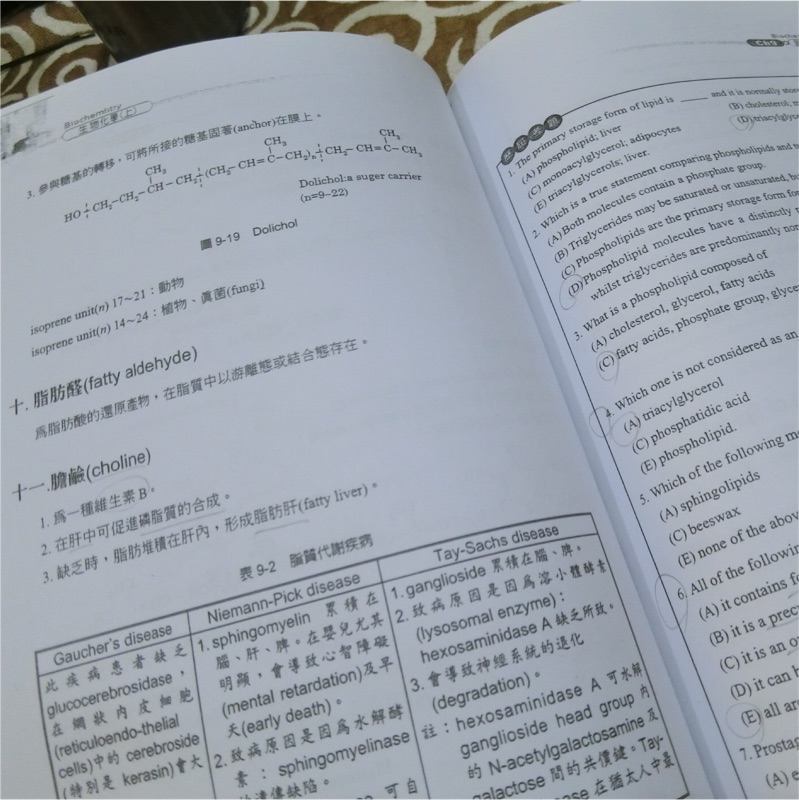 Biochemistry
生物化學(上)
3. 參與糖基的轉移，可將所接的糖基固著(anchor)在膜上。
CH₃ CH₃ CH₃
HO CH₂-CH₂-CH-CH₂ (CH₂-CH=C-CH₂)ₙ CH₂-CH=C-CH₃
Dolichol:a suger carrier
(n=9–22)
圖 9-19 Dolichol
isoprene unit(n) 17~21：動物
isoprene unit(n) 14~24：植物、真菌(fungi)
十. 脂肪醛(fatty aldehyde)
為脂肪酸的還原產物，在脂質中以游離態或結合態存在。
十一.膽鹼(choline)
1. 為一種維生素 B。
2. 在肝中可促進磷脂質的合成。
3. 缺乏時，脂肪堆積在肝內，形成脂肪肝(fatty liver)。
表 9-2 脂質代謝疾病
Gaucher's disease
此疾病患者缺乏
glucocerebrosidase，
在網狀內皮細胞
(reticuloendo-thelial
cells)中的 cerebroside
(特別是 kerasin)會大
Niemann-Pick disease
1. sphingomyelin 累積在
腦、肝、脾。在嬰兒尤其
明顯，會導致心智障礙
(mental retardation)及早
夭(early death)。
2. 致病原因是因為水解酵
素：sphingomyelinase
的遺傳缺陷。
可自
Tay-Sachs disease
1. ganglioside 累積在腦、脾。
2. 致病原因是因為溶小體酵素
(lysosomal enzyme)：
hexosaminidase A 缺乏所致。
3. 會導致神經系統的退化
(degradation)。
註：hexosaminidase A 可水解
ganglioside head group 內
的 N-acetylgalactosamine 及
galactose 間的共價鍵。Tay-
在猶太人中最
Ch9
1. The primary storage form of lipid is ____ and it is normally
(A) phospholipid; liver
(B) cholesterol;
(C) monoacylglycerol; adipocytes
(E) triacylglycerols; liver.
2. Which is a true statement comparing phospholipids and
(A) Both molecules contain a phosphate group.
(B) Triglycerides may be saturated or unsaturated,
(C) Phospholipids are the primary storage form
(D) Phospholipid molecules have a distinctly
whilst triglycerides are predominantly
3. What is a phospholipid composed of
(A) cholesterol, glycerol, fatty acids
(C) fatty acids, phosphate group,
4. Which one is not considered as an
(A) triacylglycerol
(C) phosphatidic acid
(E) phospholipid.
5. Which of the following
(A) sphingolipids
(C) beeswax
(E) none of the
6. All of the
(A) it contains
(B) it is a
(C) it is an
(D) it can
(E) all
7.
(A)